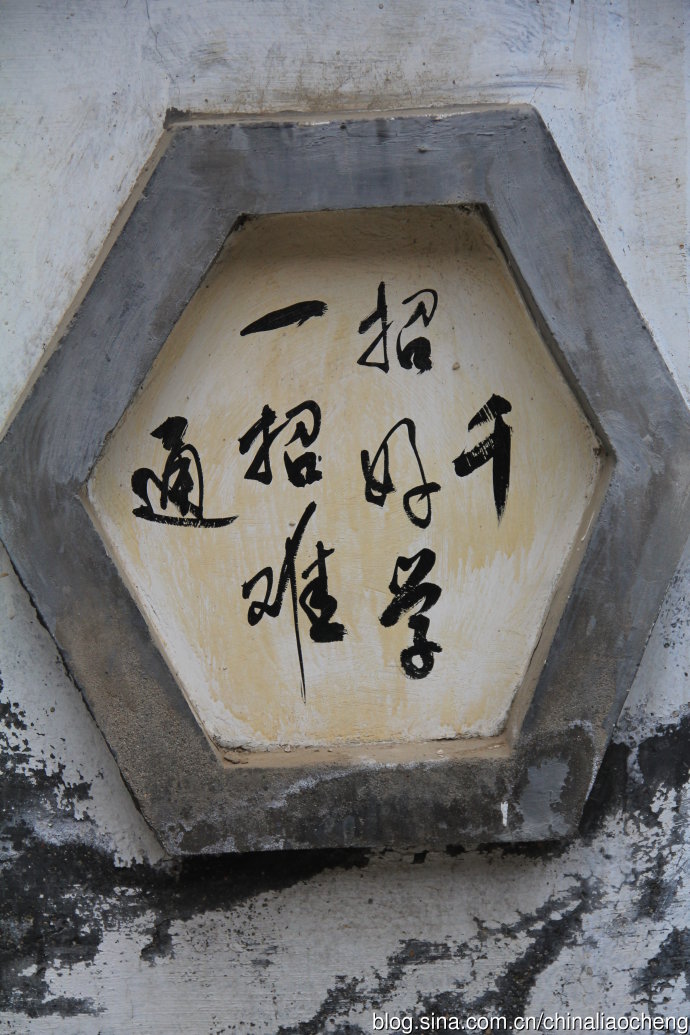 千
招好学
一招难
通
blog.sina.com.cn/chinaliaocheng